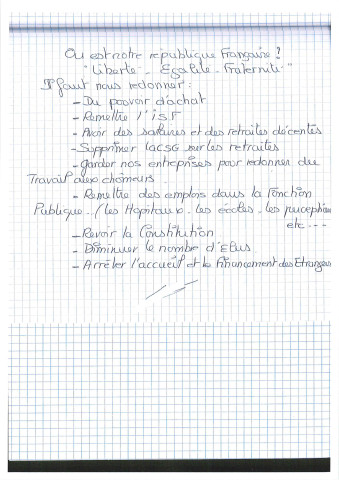 Ou est notre république Française ?
"Liberté - Egalité - Fraternité"
Il faut nous redonner :
- Du pouvoir d'achat
- Remettre l'ISF
- Avoir des salaires et des retraites décentes
- Supprimer la CSG sur les retraites
- garder nos entreprises pour redonner du
Travail aux chômeurs
- Remettre des emplois dans la Fonction
Publique. (les Hopitaux - les écoles - les perceptions
etc ...
- Revoir la Constitution
- Diminuer le nombre d'Elus
- Arrêter l'accueil et le financement des Etrangers